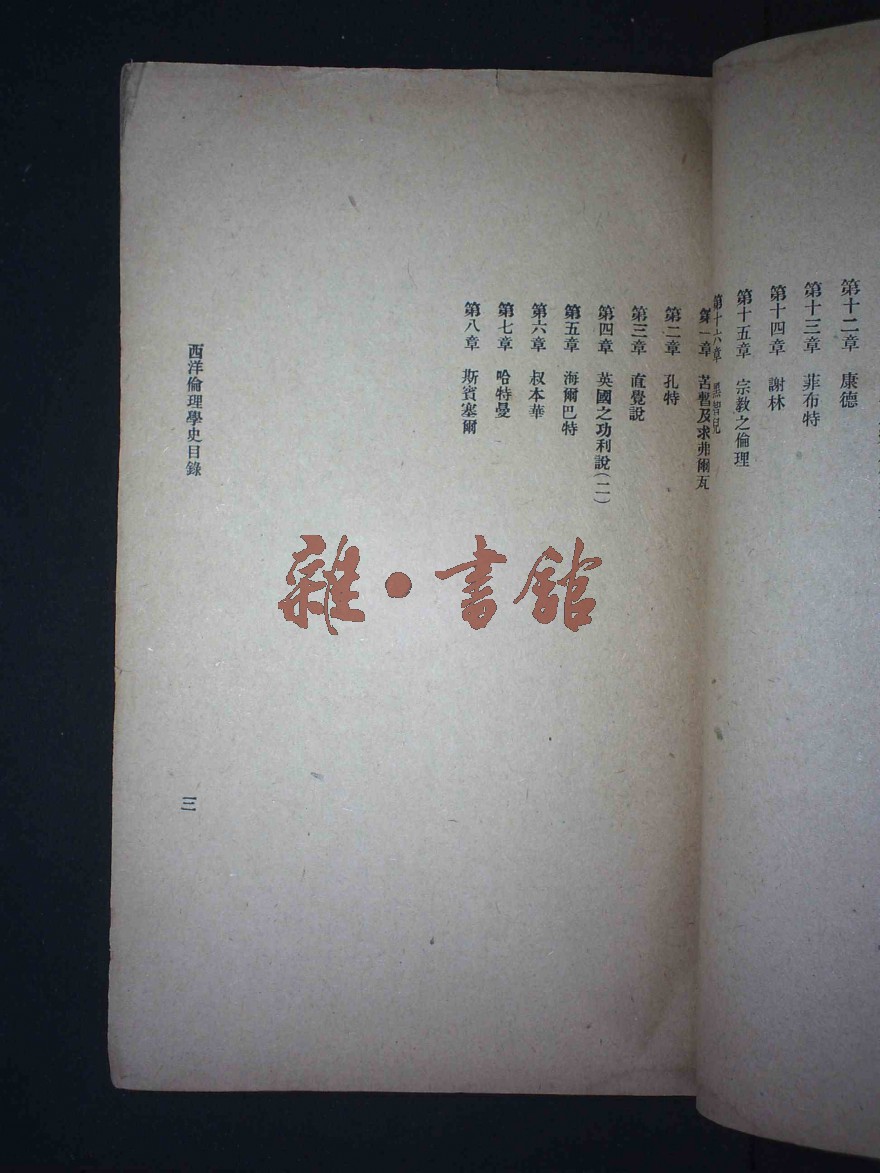 第十二章 康德
第十三章 菲布特
第十四章 謝林
第十五章 宗教之倫理
第十六章 黑智兒
第一章 苦暫及求弗爾瓦
第二章 孔特
第三章 直覺說
第四章 英國之功利說(二)
第五章 海爾巴特
第六章 叔本華
第七章 哈特曼
第八章 斯賓塞爾
西洋倫理學史目錄
三
雜•書館